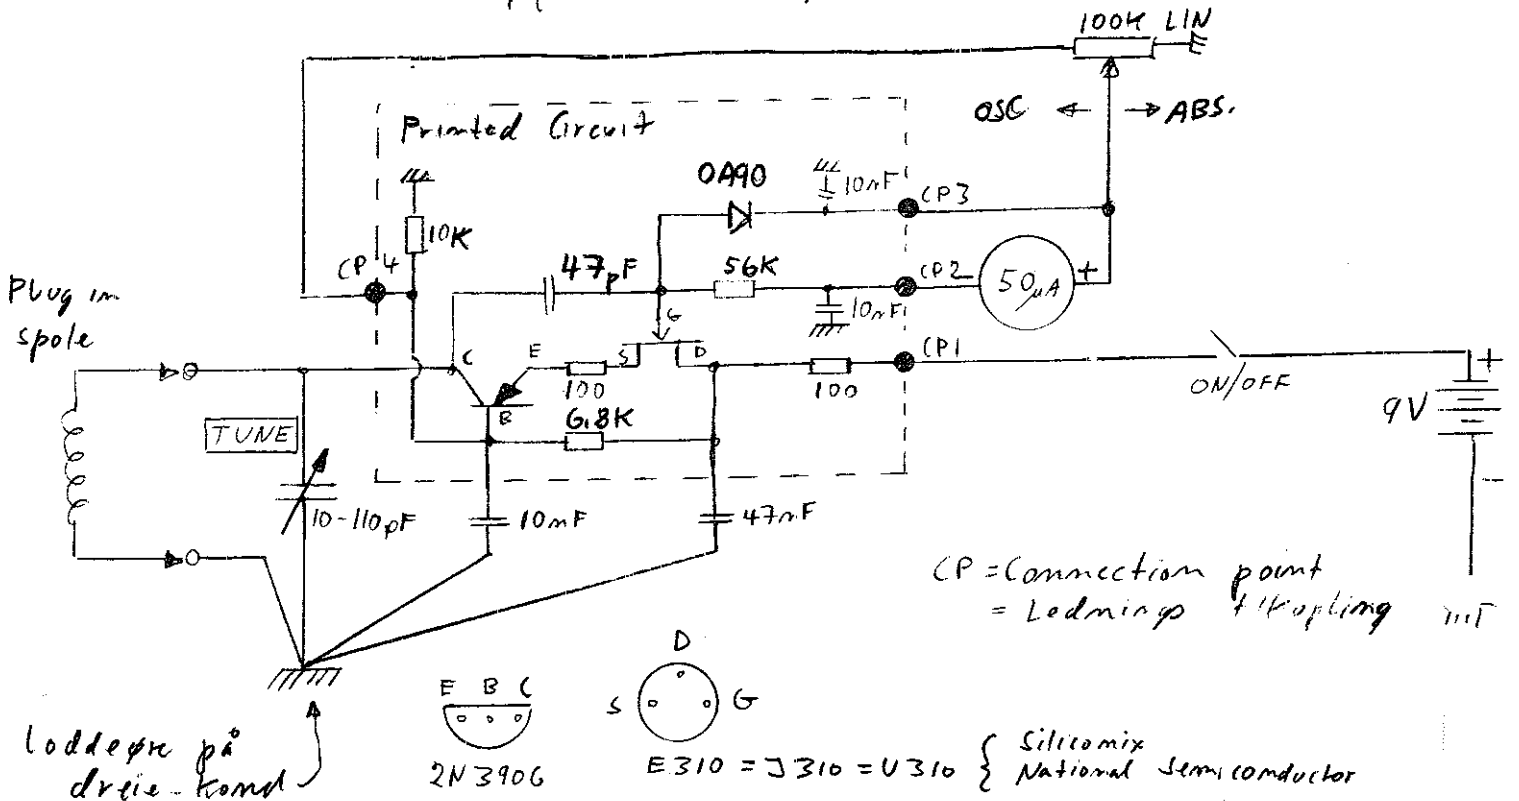 100K LIN
OSC ABS.
Printed Circuit
OA90
10nF
CP3
10K
CP4
47pF
56K
CP2
50µA
+
10nF
G
Plug in
spole
C
E
S
D
CP1
100
100
ON/OFF
+
9V
B
6.8K
TUNE
-
10-110pF
10nF
47nF
CP = Connection point
= Lednings tilkopling
D
E B C
S
G
Loddeøre på
dreie-kond
2N3906
E310 = J310 = U310
Siliconix
National Semiconductor